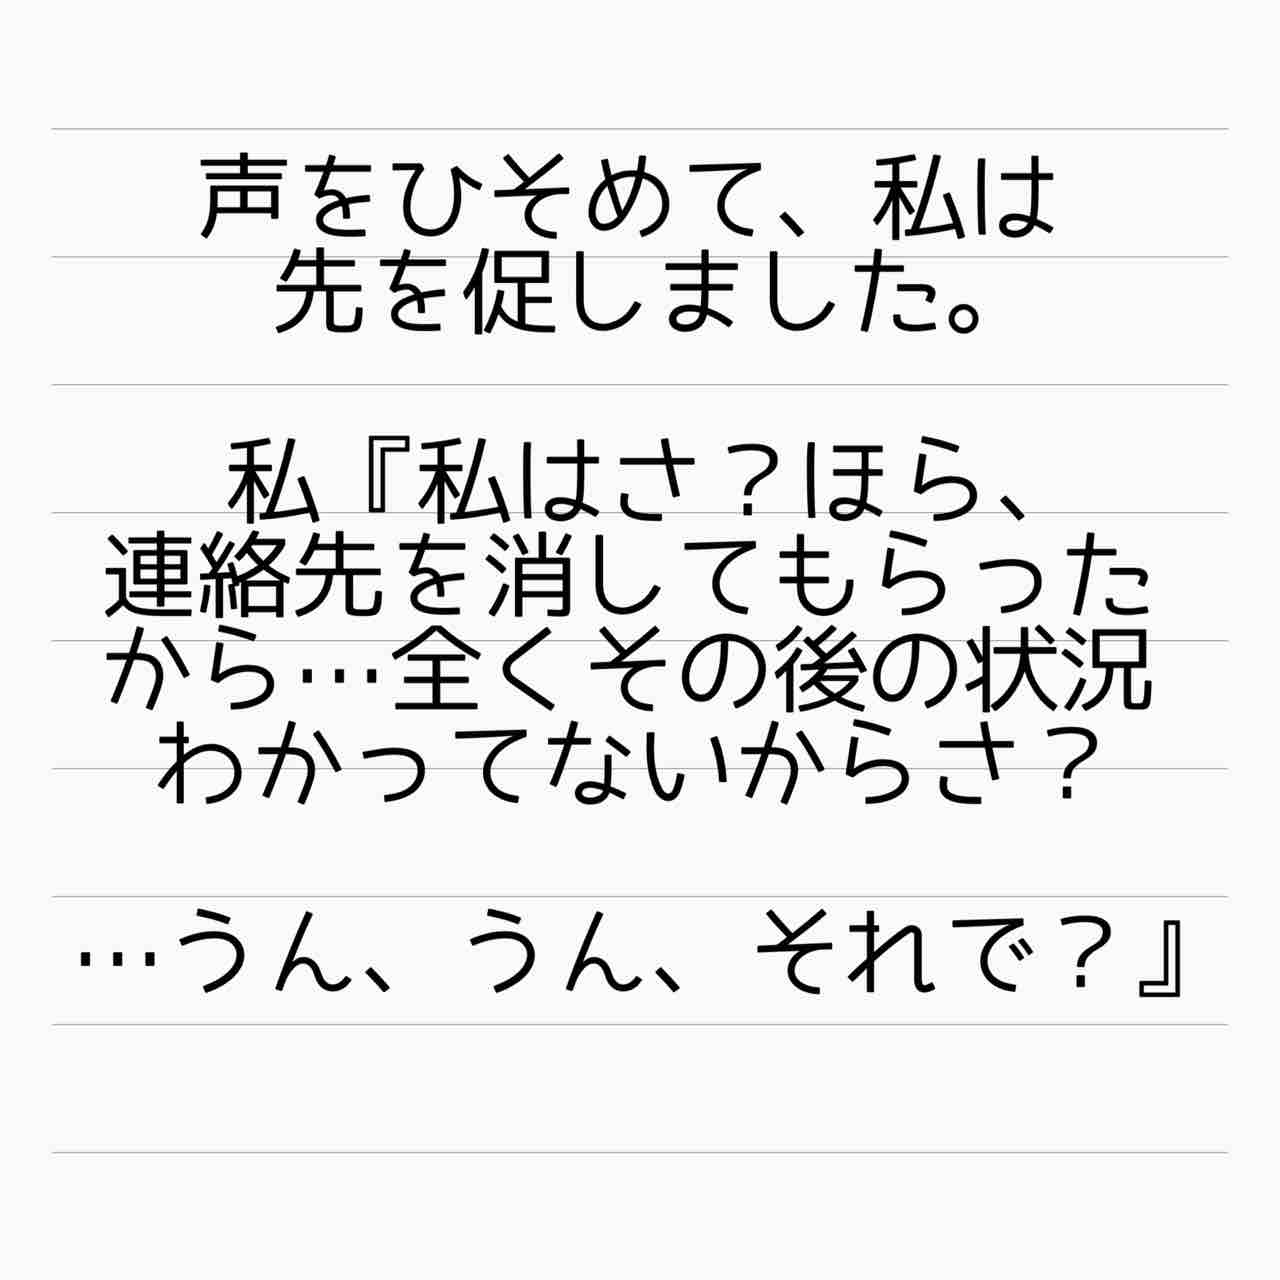 声をひそめて、私は
先を促しました。
私『私はさ？ほら、
連絡先を消してもらった
から…全くその後の状況
わかってないからさ？
…うん、うん、それで？』